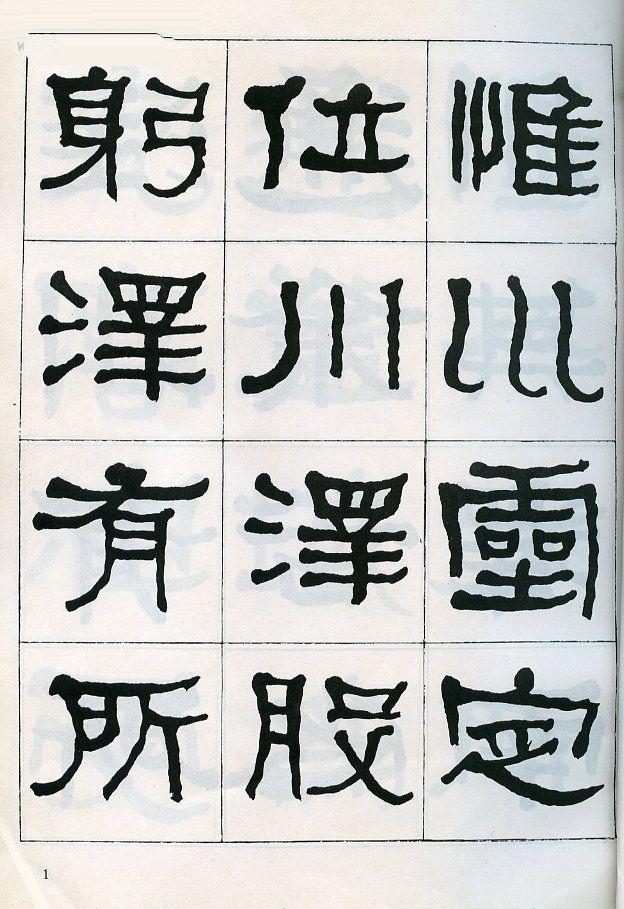 惟巛靈定
位川澤股
躬澤有所
1